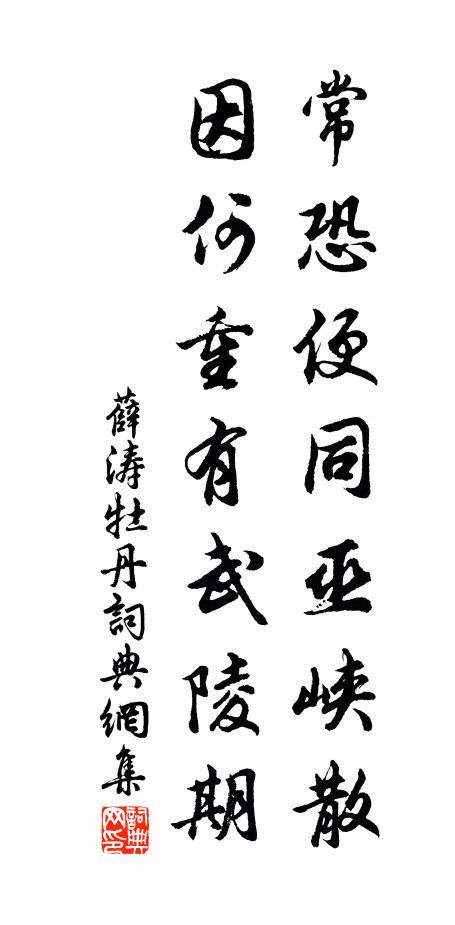 常恐便同巫峽散
因何重有武陵期
薛涛牡丹詞典網集
詞典网印